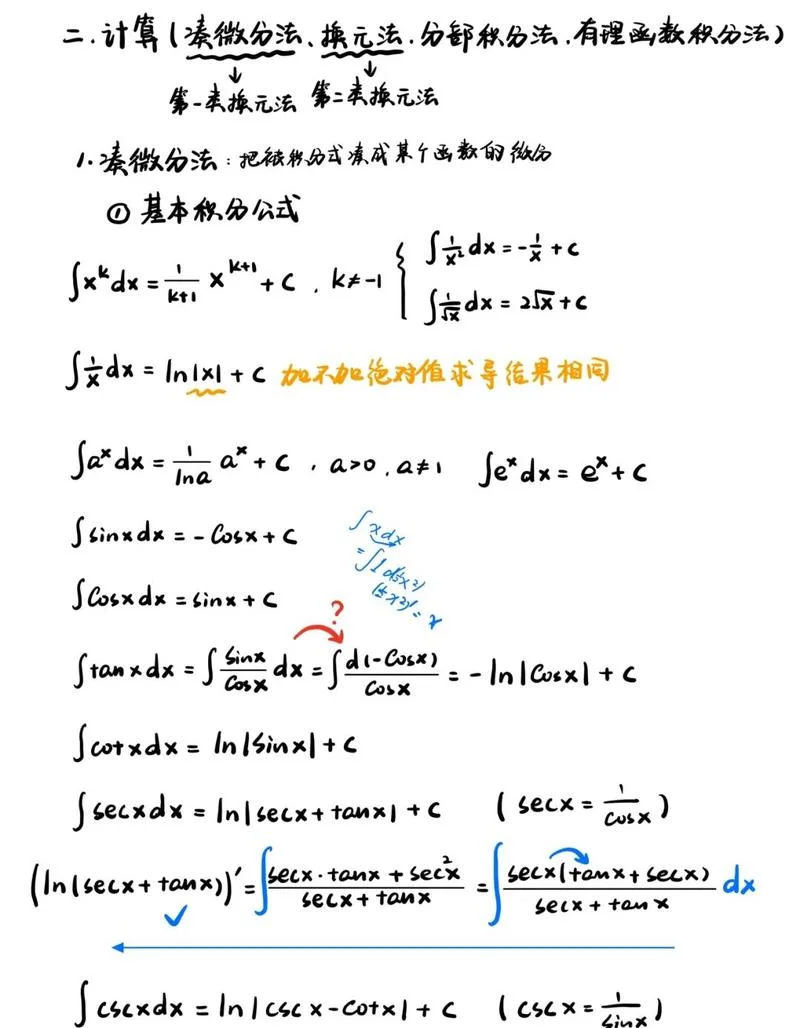 二.计算(凑微分法、换元法.分部积分法.有理函数积分法)
↓ ↓
第一类换元法 第二类换元法
1.凑微分法:把被积分式凑成某个函数的微分
① 基本积分公式
∫x^k dx = 1/(k+1) x^(k+1) + C , k≠-1 { ∫1/x² dx = -1/x + C
∫1/√x dx = 2√x + C
∫1/x dx = ln|x| + C 加不加绝对值求导结果相同
∫a^x dx = 1/(lna) a^x + C , a>0 , a≠1 ∫e^x dx = e^x + C
∫sinx dx = -cosx + C
∫x dx
= ∫1 d(½x²)
(½x²)' = x
∫cosx dx = sinx + C
?
∫tanx dx = ∫sinx/cosx dx = ∫d(-cosx)/cosx = -ln|cosx| + C
∫cotx dx = ln|sinx| + C
∫secx dx = ln|secx + tanx| + C (secx = 1/cosx)
(ln(secx + tanx))' = ∫(secx·tanx + sec²x)/(secx + tanx) = ∫secx(tanx + secx)/(secx + tanx) dx
✓
←
∫cscx dx = ln|cscx - cotx| + C (cscx = 1/sinx)